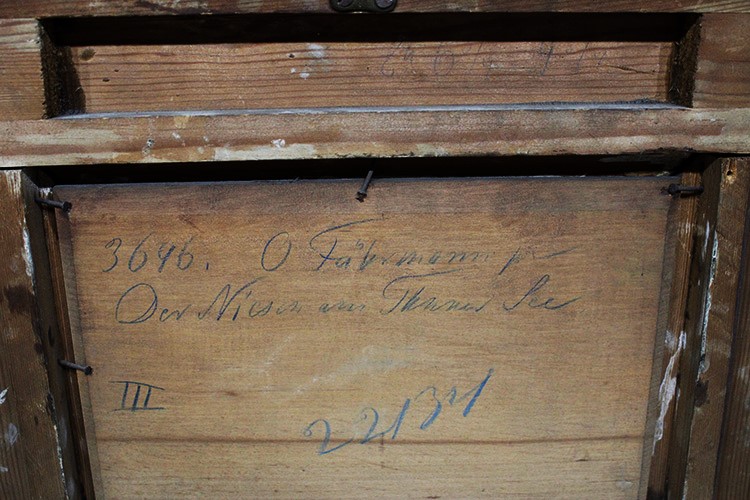 3646. O Fährmann
Der Niesen am Thuner See
III